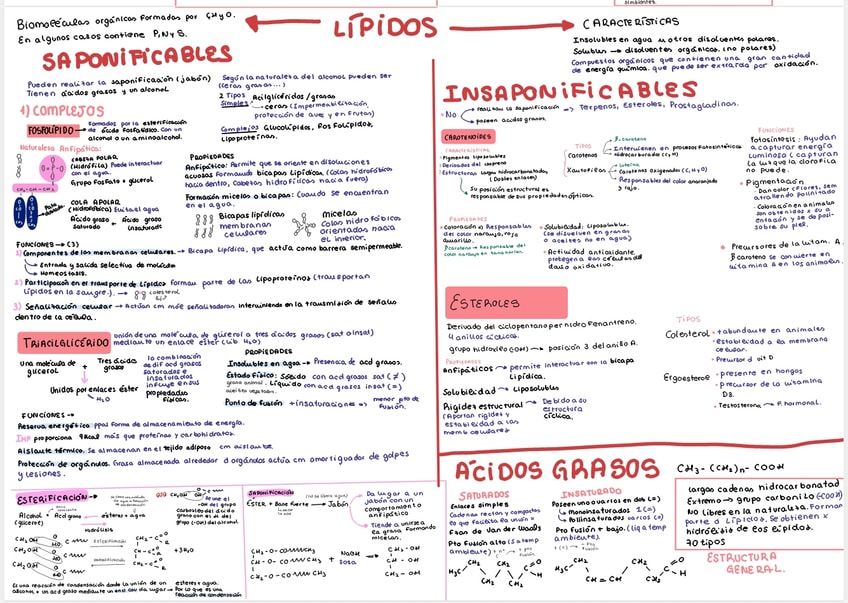 Biomoléculas orgánicas formadas por C,H y O.
En algunos casos contiene P,N y S.
LÍPIDOS
CARACTERÍSTICAS
Insolubles en agua u otros disolventes polares.
Solubles → disolventes orgánicos. (no polares)
Compuestos orgánicos que contienen una gran cantidad
de energía química que puede ser extraída por oxidación.
SAPONIFICABLES
Pueden realizar la saponificación (jabón)
Tienen ácidos grasos y un alcohol
Según la naturaleza del alcohol pueden ser
(ceras grasas...)
2 Tipos
Simples Acilglicéridos/grasas
ceras (Impermeabilización,
protección de ave y en frutas)
Complejos Glucolípidos, Fosfolípidos,
Lipoproteínas.
1) COMPLEJOS
FOSFOLÍPIDO → formados por la esterificación
de ácido fosfatídico. con un
alcohol o un aminoalcohol.
Naturaleza Anfipática:
CABEZA POLAR
(Hidrófila) Puede interactuar
con el agua.
Grupo Fosfato + glicerol
CH₂-CH-CH₂
COLA APOLAR
(Hidrofóbica) Evita el agua
Ácido graso + Ácido graso
saturado insaturado
PROPIEDADES
Anfipático: Permite que se oriente en disoluciones
acuosas formando bicapas lipídicas (colas hidrofóbicas
hacia dentro, cabezas hidrofílicas hacia fuera)
Formación micelas o bicapas: cuando se encuentran
en el agua.
Bicapas lipídicas
membranas
celulares
micelas
Colas hidrofóbicas
orientadas hacia
el interior.
FUNCIONES → (3)
1) Componentes de las membranas celulares. → Bicapa lipídica, que actúa como barrera semipermeable.
Entrada y salida selectiva de moléculas
Homeostasis.
2) Participación en el transporte de lípidos forman parte de las lipoproteínas (transportan
lípidos en la sangre.) → colesterol
3) Señalización celular → Actúan cm mole señalizadoras interviniendo en la transmisión de señales
dentro de la célula.
TRIACILGLICÉRIDO unión de una molécula de glicerol a tres ácidos grasos (sat o insat)
mediante un enlace éster (lib H₂O)
Una molécula de glicerol + Tres ácidos grasos
Unidos por enlaces éster
H₂O
la combinación
de dif acd grasos
saturados e
insaturados
influye en sus
propiedades
físicas.
PROPIEDADES
Insolubles en agua → Presencia de acd grasos.
Estado físico: Sólido con acd grasos sat (≠)
grasa animal. Líquido con acd grasos insat (=)
aceites vegetales.
Punto de fusión + insaturaciones → menor pto de
fusión.
FUNCIONES →
Reserva energética ppal forma de almacenamiento de energía.
IMP proporciona 9kcal más que proteínas y carbohidratos.
Aislante térmico. Se almacenan en el tejido adiposo cm aislante.
Protección de órganos. Grasa almacenada alrededor d órganos actúa cm amortiguador de golpes
y lesiones.
ESTERIFICACIÓN
Alcohol + Acd graso → ésteres + agua
(glicerol)
Hidrólisis
+ 3H₂O
Es una reacción de condensación donde la unión de un
alcohol + un acd graso mediante un enl cov da lugar → ésteres + agua.
Por lo que es una
reacción de condensación
SAPONIFICACIÓN
ÉSTER + Base fuerte → Jabón
Da lugar a un
jabón con un
comportamiento
anfipático
Tiende a unirse a
la grasa formando
micelas.
+ NaOH
sosa
INSAPONIFICABLES
• No realizan la saponificación → Terpenos, Esteroles, Prostaglandinas.
poseen ácidos grasos.
CAROTENOIDES
CARACTERÍSTICAS
• Pigmentos liposolubles
• Derivados del isopreno
• Estructuras largas hidrocarbonadas
(Dobles enlaces)
Su posición estructural es
responsable de sus propiedades ópticas.
TIPOS
Carotenos
β caroteno
Intervienen en procesos fotosintéticos
hidrocarburos (C,H)
Xantofilas
luteína
Carotenos oxigenados (C,H,O)
Responsables del color anaranjado
y rojo.
FUNCIONES
Fotosíntesis: Ayudan
a capturar energía
luminosa y capturan
la luz que la clorofila
no puede.
• Pigmentación
- Dan color c flores, sem
atrayendo polinitado
- Coloración en animales
son obtenidos x su a
entación y se depo
sobre su piel.
• Precursores de la vitam. A.
β caroteno se convierte en
vitamina A en los animales.
PROPIEDADES
Coloración → Responsables
del color naranja, rojo,
amarillo.
β caroteno → Responsable del
color naranja en zanahorias.
• Solubilidad: Liposoluble.
(se disuelven en grasas
o aceites no en agua)
• Actividad antioxidante
protegen a las células del
daño oxidativo.
ESTEROLES
Derivado del ciclopentano per hidro Fenantreno.
4 anillos cíclicos.
grupo hidroxilo (OH) → posición 3 del anillo A.
PROPIEDADES
Anfipáticos → permite interactuar con la bicapa
lipídica.
Solubilidad → Liposolubles
Rigidez estructural → Debido a su
estructura
cíclica.
(Aportan rigidez y
estabilidad a las
memb celulares)
TIPOS
Colesterol
+ abundante en animales
• estabilidad a la membrana
celular.
• Precursor d vit D
Ergoesterol
• presente en hongos
• precursor de la vitamina
D3.
• Testosterona → P. hormonal.
ÁCIDOS GRASOS CH₃- (CH₂)n- COOH
SATURADOS
Enlaces simples
Cadenas rectas y compactas
Frzn de Van der Waals
Pto Fusión alto (s a temp
ambiente)
INSATURADO
Poseen uno o varios en dob (=)
→ Monoinsaturados 1 (=)
→ Poliinsaturados varios (=)
Pto Fusión + bajo. (liq a temp
ambiente).
Largas cadenas hidrocarbonatad
Extremo → grupo carbonilo (COOH)
No libres en la naturaleza. Forman
parte d Lípidos. Se obtienen x
hidrólisis de los lípidos.
70 tipos
ESTRUCTURA
GENERAL.